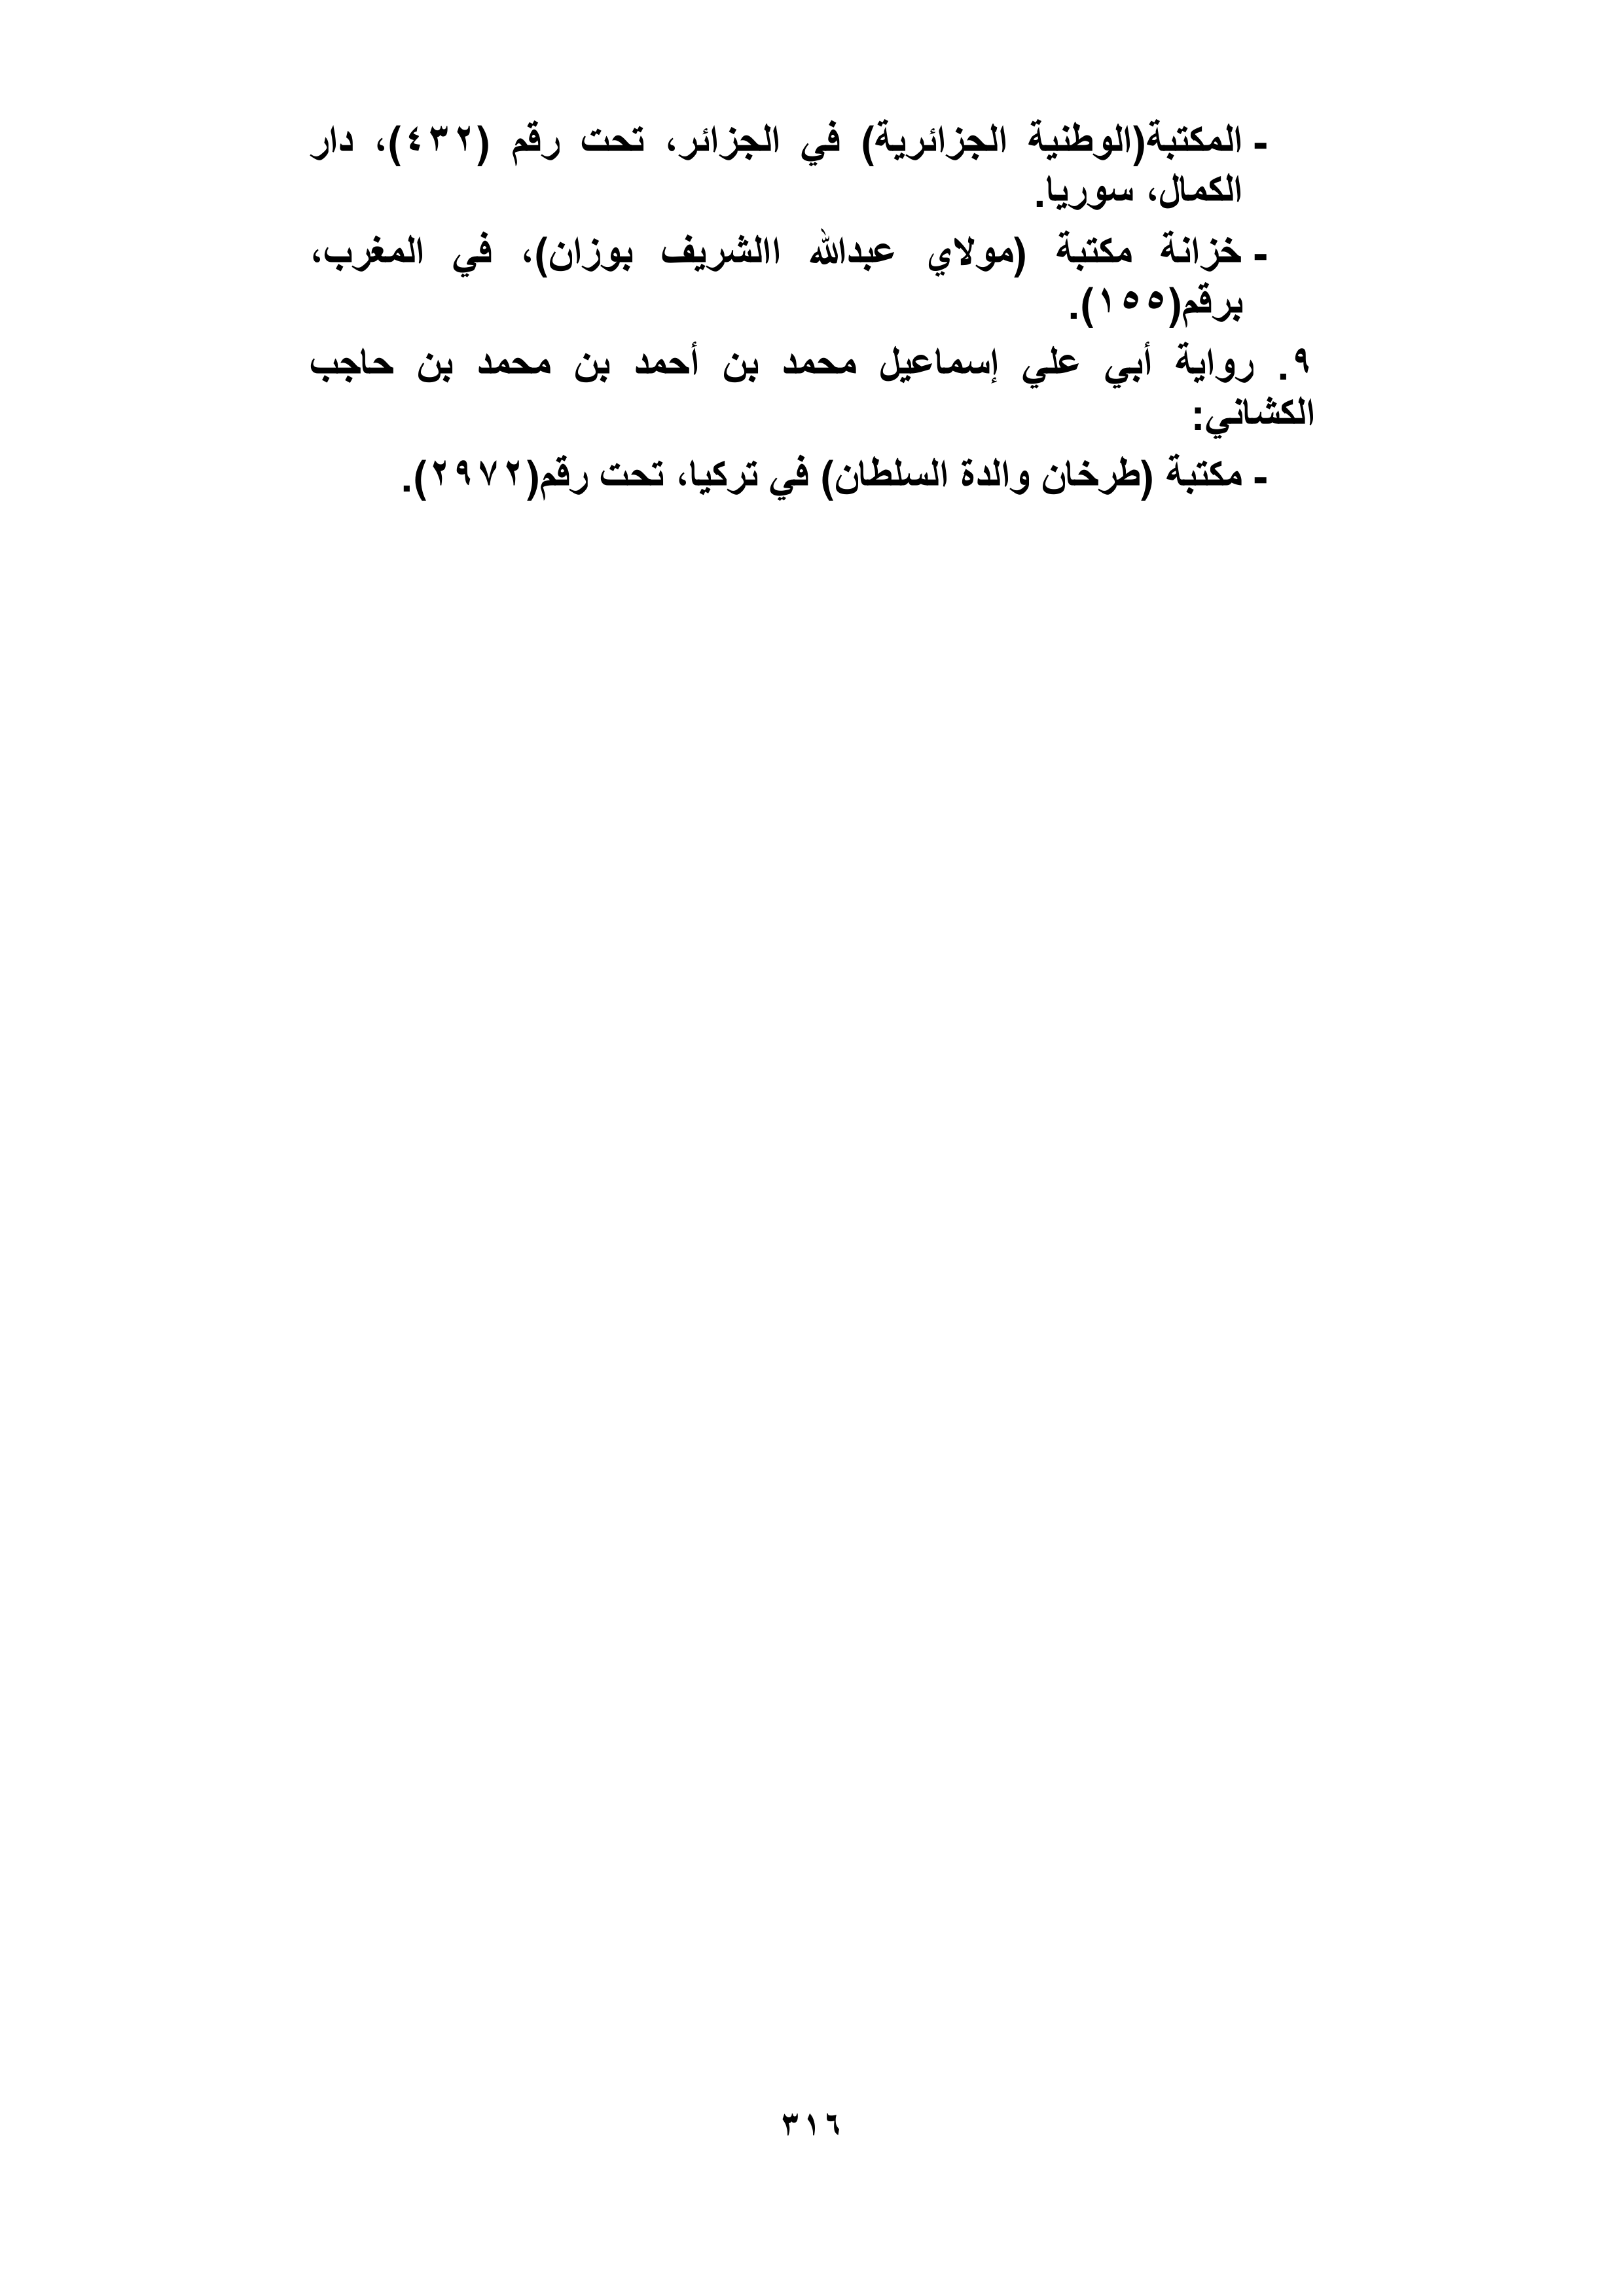 - المكتبة(الوطنية الجزائرية) في الجزائر، تحت رقم (٤٣٢)، دار
الكمال، سوريا.
- خزانة مكتبة (مولاي عبدالله االشريف بوزان)، في المغرب،
برقم(١٥٥).
٩. رواية أبي علي إسماعيل محمد بن أحمد بن محمد بن حاجب
الكشاني:
- مكتبة (طرخان والدة السلطان) في تركيا، تحت رقم(٢٩٧٢).
٣١٦